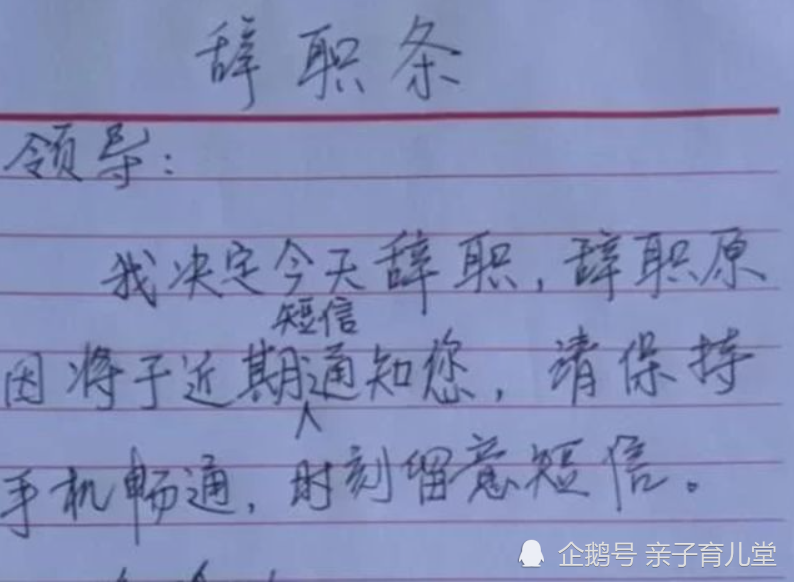 辞职条
领导：
我决定今天辞职，辞职原
短信
因将于近期通知您，请保持
手机畅通，时刻留意短信。
企鹅号 亲子育儿堂